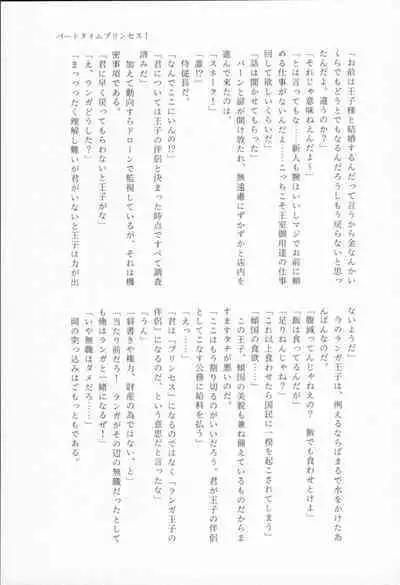 パートタイムプリンセス!
「お前は王子様と結婚するんだって言うから金なんかい
くらでもどうとでもなるんだろうしもう戻らないと思っ
てた。違うのか?」
「それじゃ意味ねえんだよぅ」
「とは言ってもな……新人も腕はいいしマジでお前に頼
める仕事がないんだよ……こっちこそ王室御用達の仕事
回して欲しいくらいだ」
「話は聞かせてもらった」
バーンと扉が開け放たれ、無遠慮にずかずかと店内を
進んで来たのは
「スネーク!」
「誰!?」
侍従長だ。
「なんでここにいんの!?」
「君については王子の伴侶と決まった時点ですべて調査
済みだ」
加えて動向すらドローンで監視しているが、それは機
密事項である。
「君に早く戻ってもらわないと王子がな」
「え、ランガどうした?」
「まっっったく理解し難いが君がいないと王子は力が出
ないようだ」
今のランガ王子は、例えるならばまるで水をかけたあ
んぱんなのだ。
「腹減ってんじゃねえの? 飯でも食わせとけよ」
「飯は食ってるんだが」
「足りねんじゃね?」
「これ以上食わせたら国民に一揆を起こされてしまう」
「傾国の食欲……」
この王子、傾国の美貌も兼ね備えているものだからま
すますタチが悪いのだ。
「ここはもう割り切るのがいいだろう。君が王子の伴侶
としてこなす公務に給料を払う」
「えっ……」
「君は『プリンセス』になるのではなく『ランガ王子の
伴侶』になるのだ、という意思だと言ったな」
「うん」
「肩書きや権力、財産の為ではない、と」
「当たり前だろ! ランガがその辺の無職だったとして
も俺はランガと一緒になるぜ!」
「いや無職はダメだろ……」
岡の突っ込みはごもっともである。